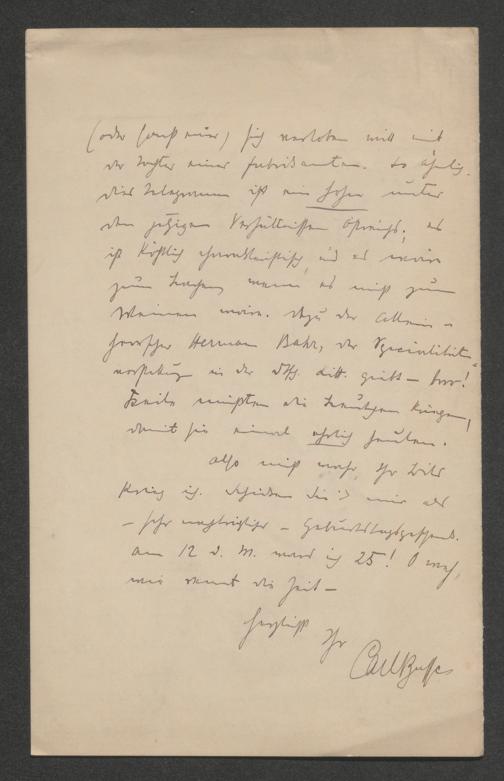 (oder sonst einer) sich verloben will mit
der Tochter eines Fabrikanten. So ähnlich.
Dies Telegramm ist ein Hohn unter
den jetzigen Verhältnissen Östreichs; es
ist köstlich charakteristisch und es wäre
zum Lachen, wenn es nicht zum
Weinen wäre. Dazu der Allein-
herrscher Herman Bahr, der Specialitäten
in der Litt. giebt – brr!
Keile müßten die Kriegen,
damit sie einmal ehrlich heulen.
Also nicht wahr, Ihr Bild
krieg ich. Schicken Sie's mir als
– sehr nachträgliches – Geburtstagsgeschenk.
Am 12 d. M. ward ich 25! O weh,
wie rennt die Zeit –
Herzlichst
Ihr
Carl Busse